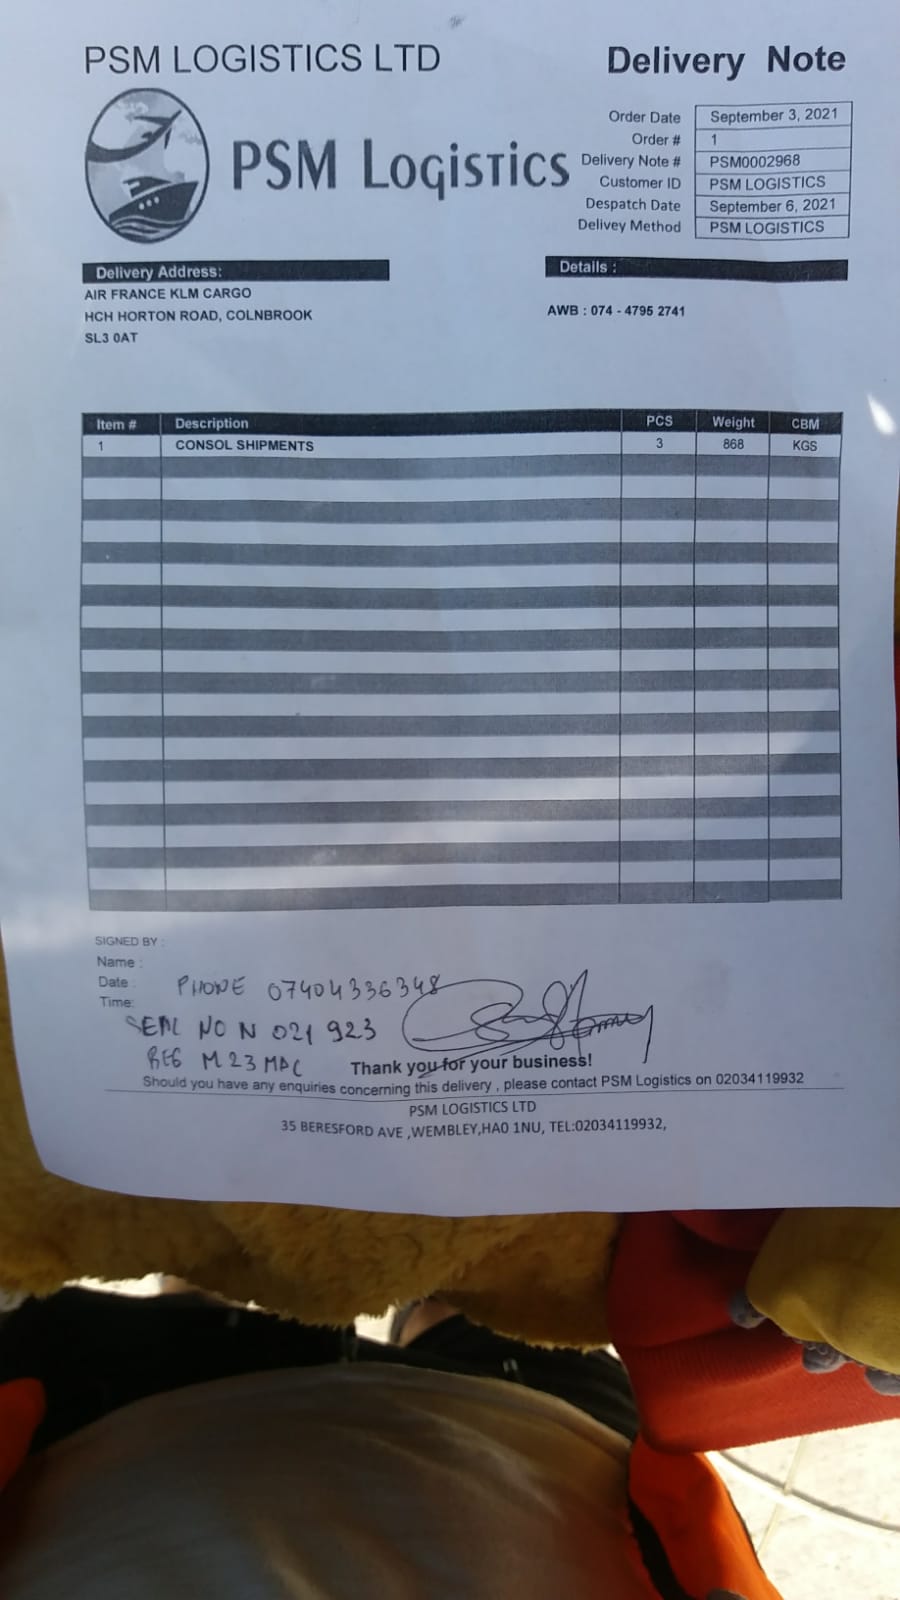 PSM LOGISTICS LTD
Delivery Note
PSM Logistics
Order Date September 3, 2021
Order # 1
Delivery Note # PSM0002968
Customer ID PSM LOGISTICS
Despatch Date September 6, 2021
Delivey Method PSM LOGISTICS
Delivery Address:
AIR FRANCE KLM CARGO
HCH HORTON ROAD, COLNBROOK
SL3 0AT
Details :
AWB : 074 - 4795 2741
Item # Description PCS Weight CBM
1 CONSOL SHIPMENTS 3 868 KGS
SIGNED BY :
Name :
Date :
Time:
PHONE 07404336348
SEAL NO N 021 923
REG M23 MAC
Thank you for your business!
Should you have any enquiries concerning this delivery , please contact PSM Logistics on 02034119932
PSM LOGISTICS LTD
35 BERESFORD AVE ,WEMBLEY,HA0 1NU, TEL:02034119932,